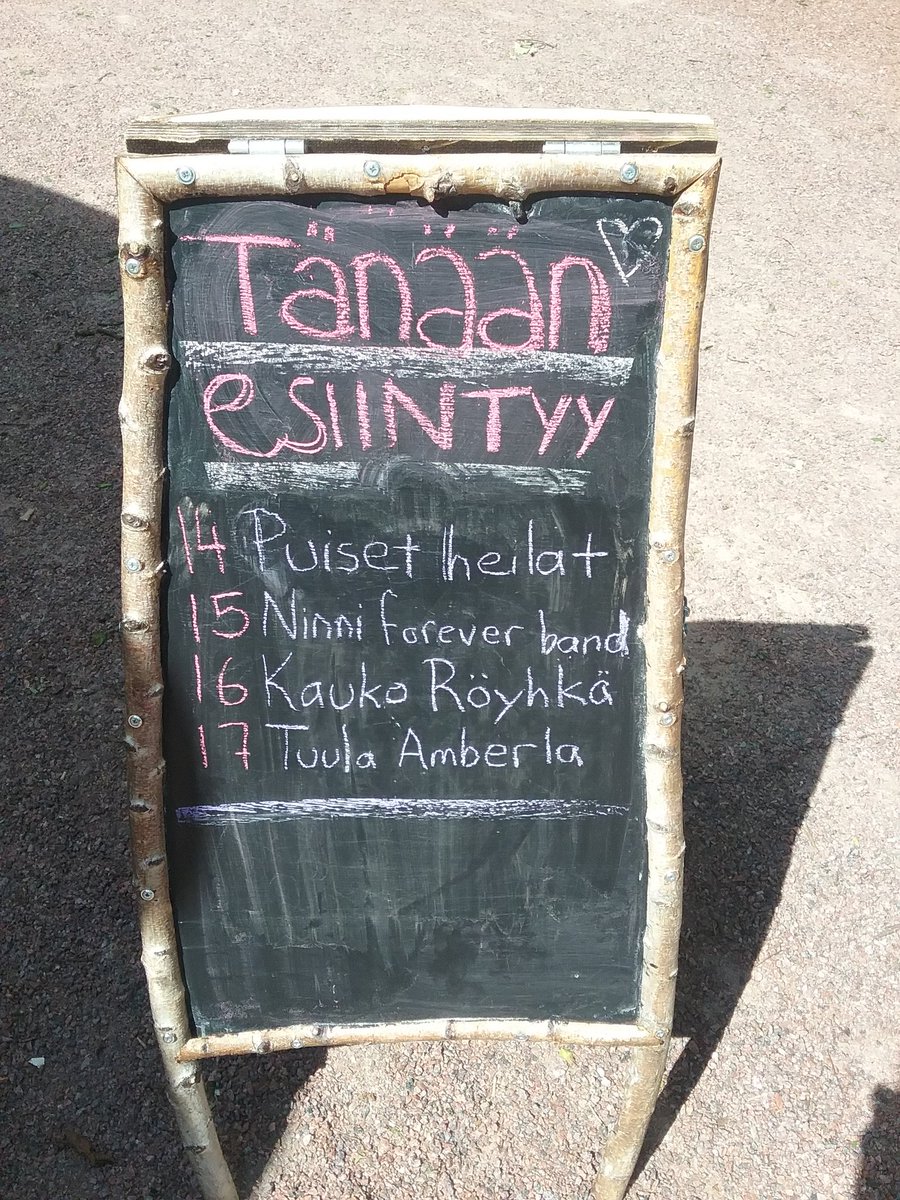 Tänään
esiintyy
14 Puiset heilat
15 Ninni forever band
16 Kauko Röyhkä
17 Tuula Amberla